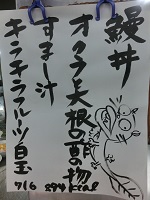 鰻丼
オクラと大根の酢の物
すまし汁
キラキラフルーツ白玉
7/6 894 kcal